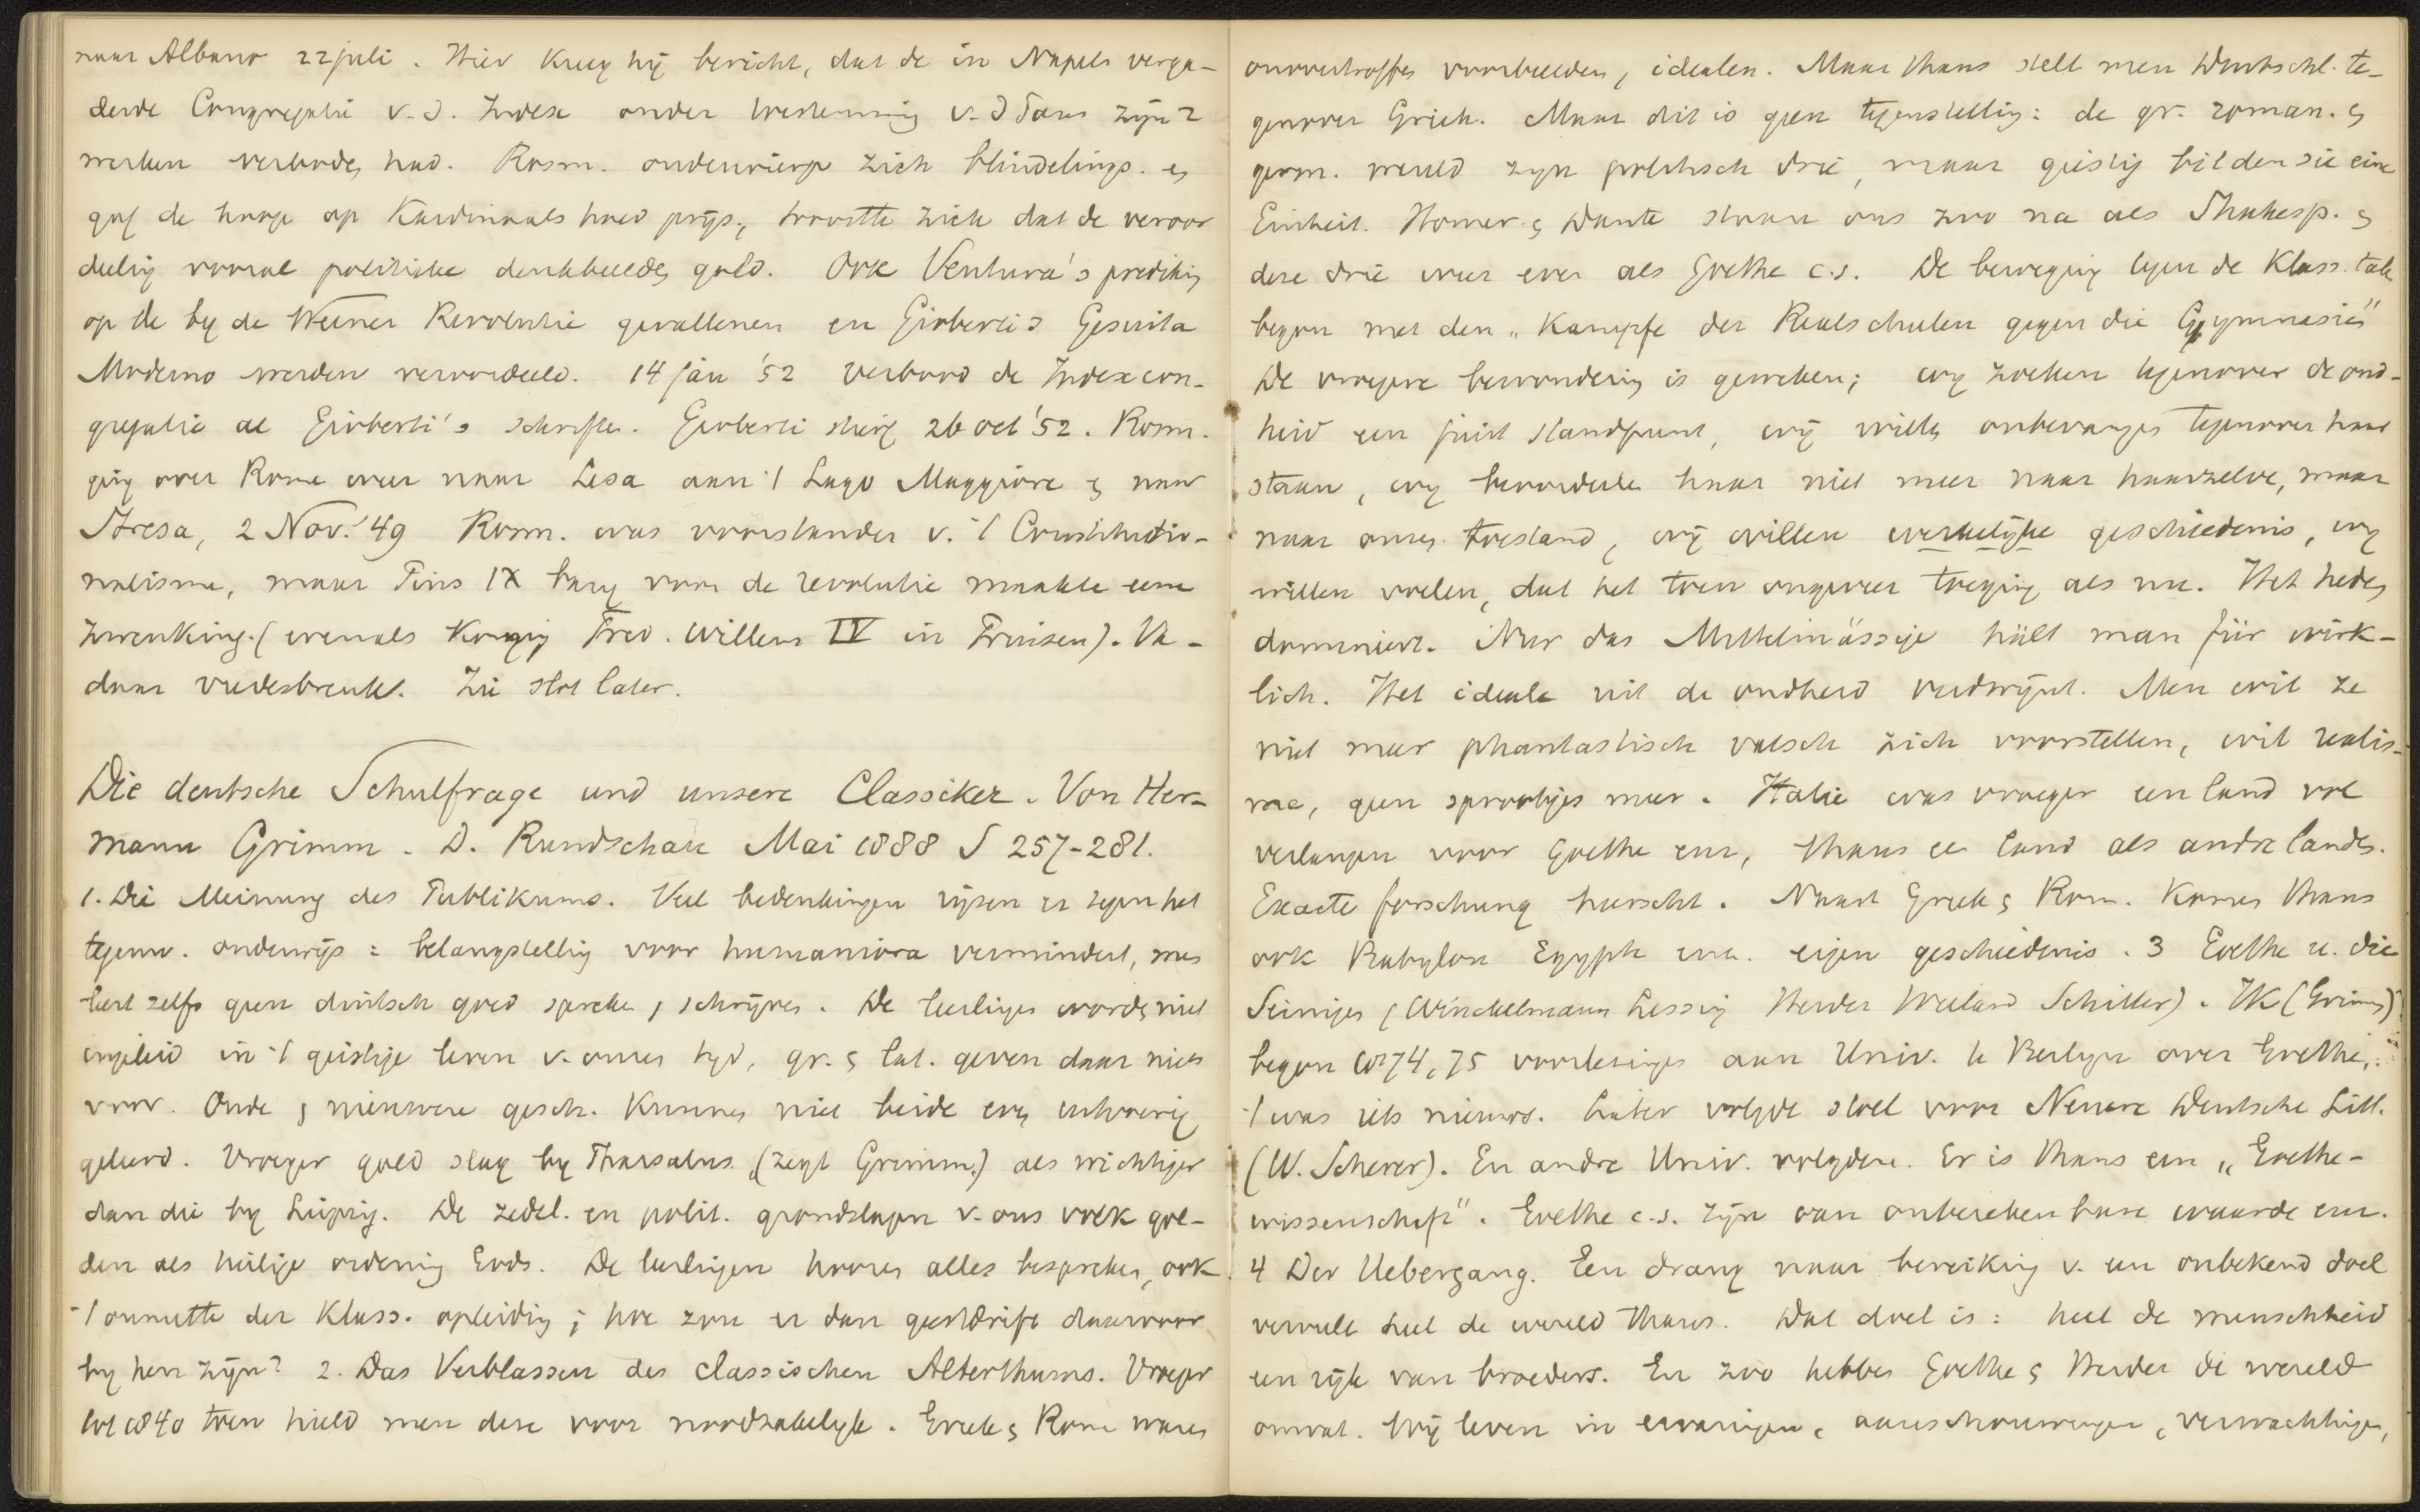 naar Albano 22 juli. Hier kreeg hij bericht, dat de in Napels verga-
derde Congregatie v. d. Index onder toestemming v. d Paus zijn 2
werken verboden had. Rosm. onderwierp zich blindelings. en
gaf de hoop op Kardinaals hoed prijs, troostte zich dat de veroor
deeling vooral politieke denkbeelden gold. Ook Ventura's predikin
op de by de Weener Revolutie gevallenen en Gioberti's Gesuita
Moderno werden veroordeeld. 14 jan '52 verbood de Indexcon-
gregatie al Gioberti's schriften. Gioberti stierf 26 oct '52. Rosm.
ging over Rome weer naar Lesa aan 't Lago Maggiore en naar
Stresa, 2 Nov. '49 Rosm. was voorstander v. 't Constitutio-
nalisme, maar Pius IX bang voor de revolutie maakte eene
zwenking (evenals Koning Fred. Willem IV in Pruisen). Va-
daar vredesbreuk. Zie slot later.
Die deutsche Schulfrage und unsere Classiker. Von Her-
mann Grimm. D. Rundschau Mai 1888 S 257-281.
1. Die Meinung des Publikums. Veel bedenkingen rijzen er tegen het
tegenw. onderwijs: belangstelling voor humaniora vermindert, men
leert zelfs geen duitsch goed spreken, schrijven. De leerlingen worden niet
ingeleid in 't geistige leven v. onzen tyd, gr. en lat. geven daar niets
voor. Oude en nieuwere gesch. kunnen niet beide even uitvoerig
geleerd. Vroeger gold slag by Pharsalus (zegt Grimm) als wichtiger
dan die by Leipzig. De zedel. en polit. grondslagen v. ons volk gol-
den als heilige ordening Gods. De leerlingen hooren alles bespreken, ook
't onnutte der klass. opleiding; hoe zou er dan geestdrift daarvoor
by hen zijn? 2. Das Verblassen des classischen Alterthums. Vroeger
tot 1840 toen hield men deze voor noodzakelijk. Griek en Rome waren
onovertroffen voorbeelden, idealen. Maar thans stelt men Deutschl. te-
genover Griek. Maar dit is geen tegenstelling: de gr. roman. en
germ. wereld zyn politisch drie, maar geistig bilden sie eine
Einheit. Homer. en Dante staan ons zoo na als Shakesp. en
deze drie weer even als Goethe c.s. De beweging tegen de klass. tale
begon met den „Kampfe der Realschulen gegen die Gymnasien"
De vroegere bewondering is geweken; wy zoeken tegenover de oud-
heid een juist standpunt, wij willen onbevangen tegenover haar
staan, wy beoordeelen haar niet meer naar haarzelve, maar
naar onzen toestand, wij willen werkelijke geschiedenis, wy
willen voelen, dat het toen ongeveer toeging als nu. Het heden
domineert. Nur das Mittelmässige hält man für wirk-
lich. Het ideale uit de oudheid verdwijnt. Men wil ze
niet meer phantastisch valsch zich voorstellen, wil realis-
me, geen sprookjes meer. Italie was vroeger een land vol
verlangen voor Goethe enz, thans een land als andre landen.
Exacte forschung heerscht. Naast Griek en Rom. komen thans
ook Babylon Egypte enz. eigen geschiedenis. 3 Goethe u. die
Seinigen (Winckelmann Lessing Herder Wieland Schiller). Ik (Grimm)
begon 1874, 75 voorlezingen aan Univ. te Berlyn over Goethe,
't was iets nieuws. Later volgde stoel voor Neuere Deutsche Litt.
(W. Scherer). En andre Univ. volgden. Er is thans een „Goethe-
wissenschaft". Goethe c.s. zijn van onberekenbare waarde enz.
4 Der Uebergang. Een drang naar bereiking v. een onbekend doel
vervult heel de wereld thans. Dat doel is: heel de menschheid
een rijk van broeders. En zoo hebben Goethe en Herder de wereld
omvat. Wij leven in ervaringen, aanschouwingen, verwachtingen,